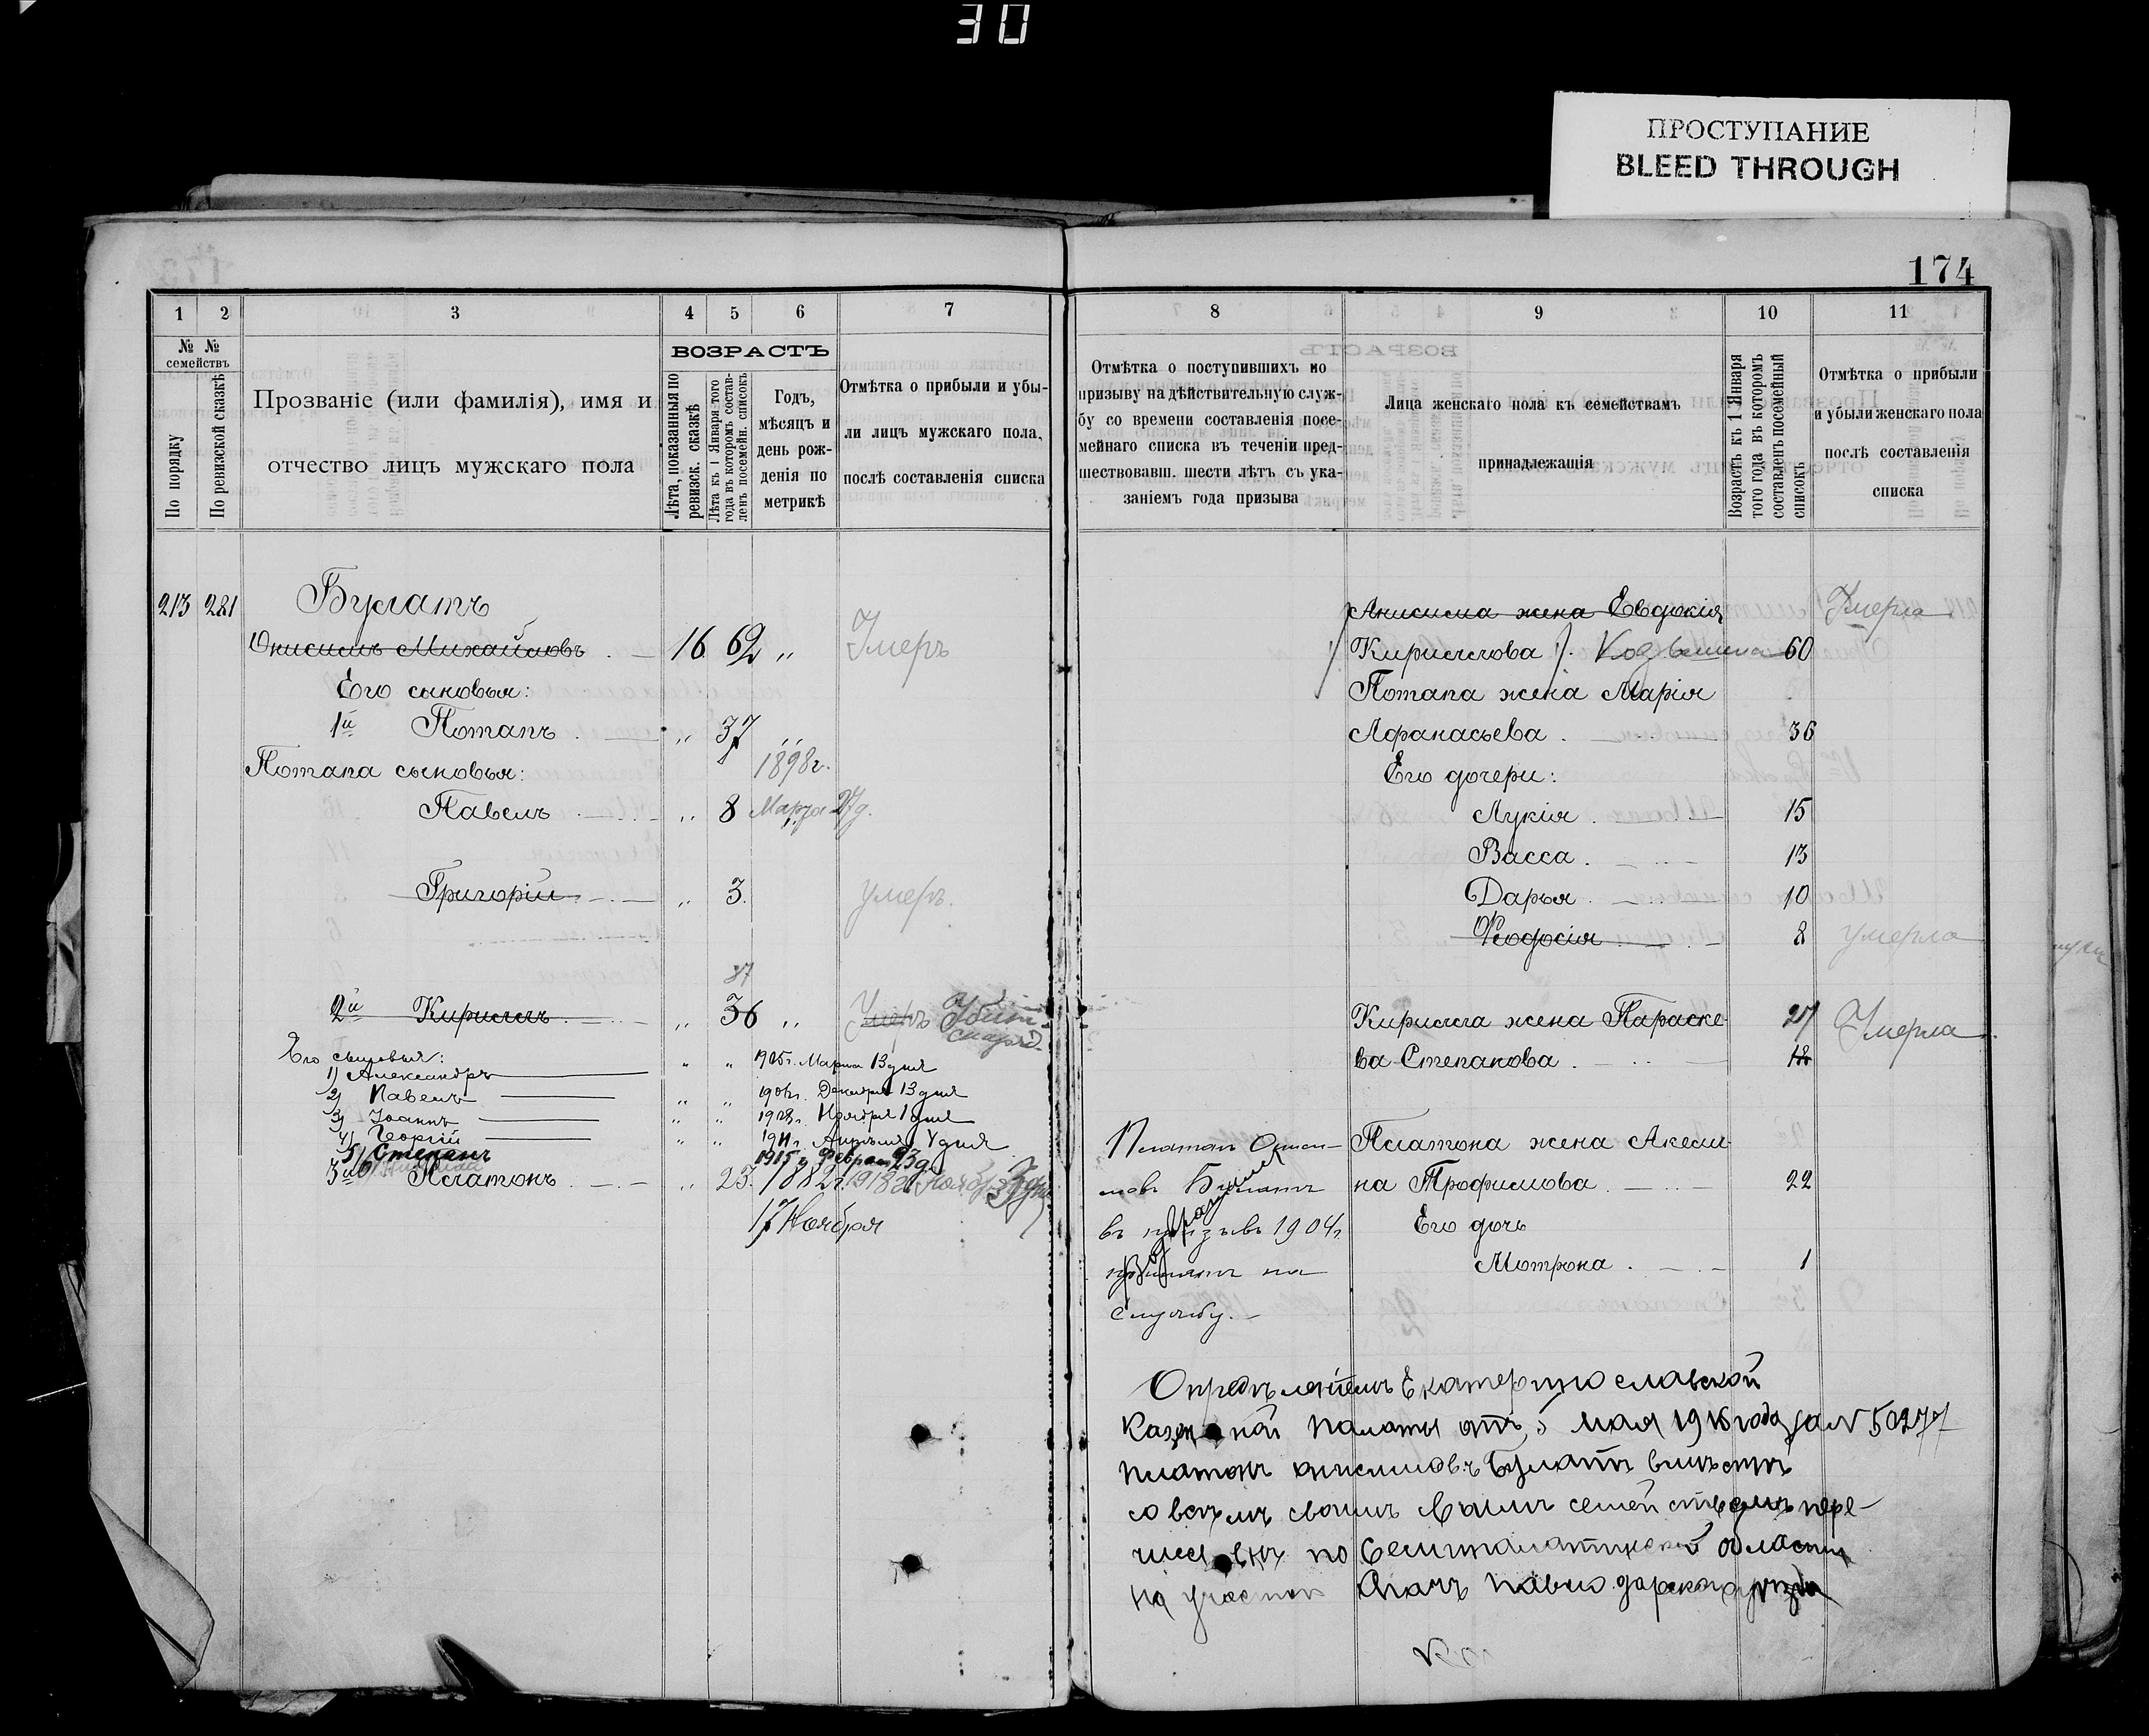 30
ПРОСТУПАНИЕ
BLEED THROUGH
174
1 2 3 4 5 6 7
№ № семействъ
По порядку
По ревизской сказкѣ
Прозваніе (или фамилія), имя и
отчество лицъ мужскаго пола
ВОЗРАСТЪ
Лѣта, показанныя по
ревизск. сказкѣ
Лѣта къ 1 Января того
года въ которомъ состав-
ленъ посемейн. списокъ
Годъ,
мѣсяцъ и
день рож-
денія по
метрикѣ
Отмѣтка о прибыли и убы-
ли лицъ мужскаго пола,
послѣ составленія списка
213 281 Булатъ
Онисимъ Михайловъ 16 62 " Умеръ
Его сыновья:
1й Потапъ " 37 "
Потапа сыновья: 1898г.
Павелъ " 8 Марта 27д.
Григорій " 3 умеръ.
37
2й Кириллъ " 36 " Умеръ Убит
Его сыновья:
1) Александръ " " 1905г. Марта 13 дня
2) Павелъ " " 1906г. Декабря 13 дня
3) Іоаннъ " " 1908г. Ноября 1 дня
4) Георгій " " 1911г. Апрѣля 4 дня
5) Степанъ 1915г Феврал 23д.
3й Платонъ " 23. 1882г.
17 Ноября
8 9 10 11
Отмѣтка о поступившихъ по
призыву на дѣйствительную служ-
бу со времени составленія посе-
мейнаго списка въ теченіи пред-
шествовавш. шести лѣтъ съ ука-
заніемъ года призыва
Лица женскаго пола къ семействамъ
принадлежащія
Возрастъ къ 1 Января
того года въ которомъ
составленъ посемейный
списокъ
Отмѣтка о прибыли
и убыли женскаго пола
послѣ составленія
списка
Анисима жена Евдокія Умерла
Кириллова 60
Потапа жена Марія
Афанасьева 36
Его дочери:
Лукія 15
Васса 13
Дарья 10
Феодосія 8 умерла
Кирилла жена Параске- 27 Умерла
ва Степанова
Платона жена Акели-
на Трофимова 22
Его дочь
Мотрона 1
Платон Ониси-
мовъ Булатъ
въ призывъ 1904г.
на
службу.
Опредѣленіемъ Екатеринославской
Казенной Палаты отъ 5 мая 1916 года за N 50277
Платонъ Онисимовъ Булатъ вмѣстѣ
со всѣмъ своимъ семействомъ пере-
численъ по Семипалатинской области
на участок Павлодарского уѣзда